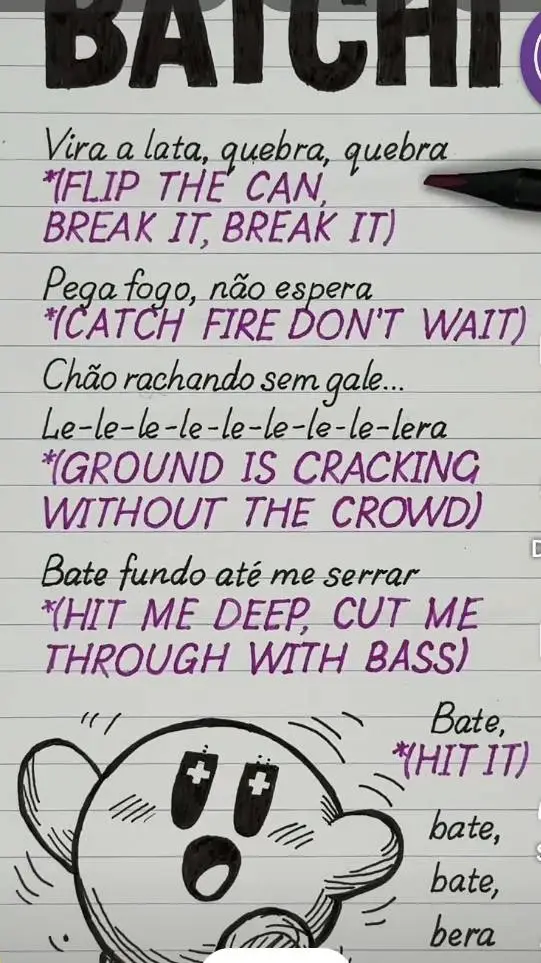 BATCHI
Vira a lata, quebra, quebra
*(FLIP THE CAN,
BREAK IT, BREAK IT)
Pega fogo, não espera
*(CATCH FIRE DON'T WAIT)
Chão rachando sem gale...
Le-le-le-le-le-le-le-le-lera
*(GROUND IS CRACKING
WITHOUT THE CROWD)
Bate fundo até me serrar
*(HIT ME DEEP, CUT ME
THROUGH WITH BASS)
Bate,
*(HIT IT)
bate,
bate,
bera